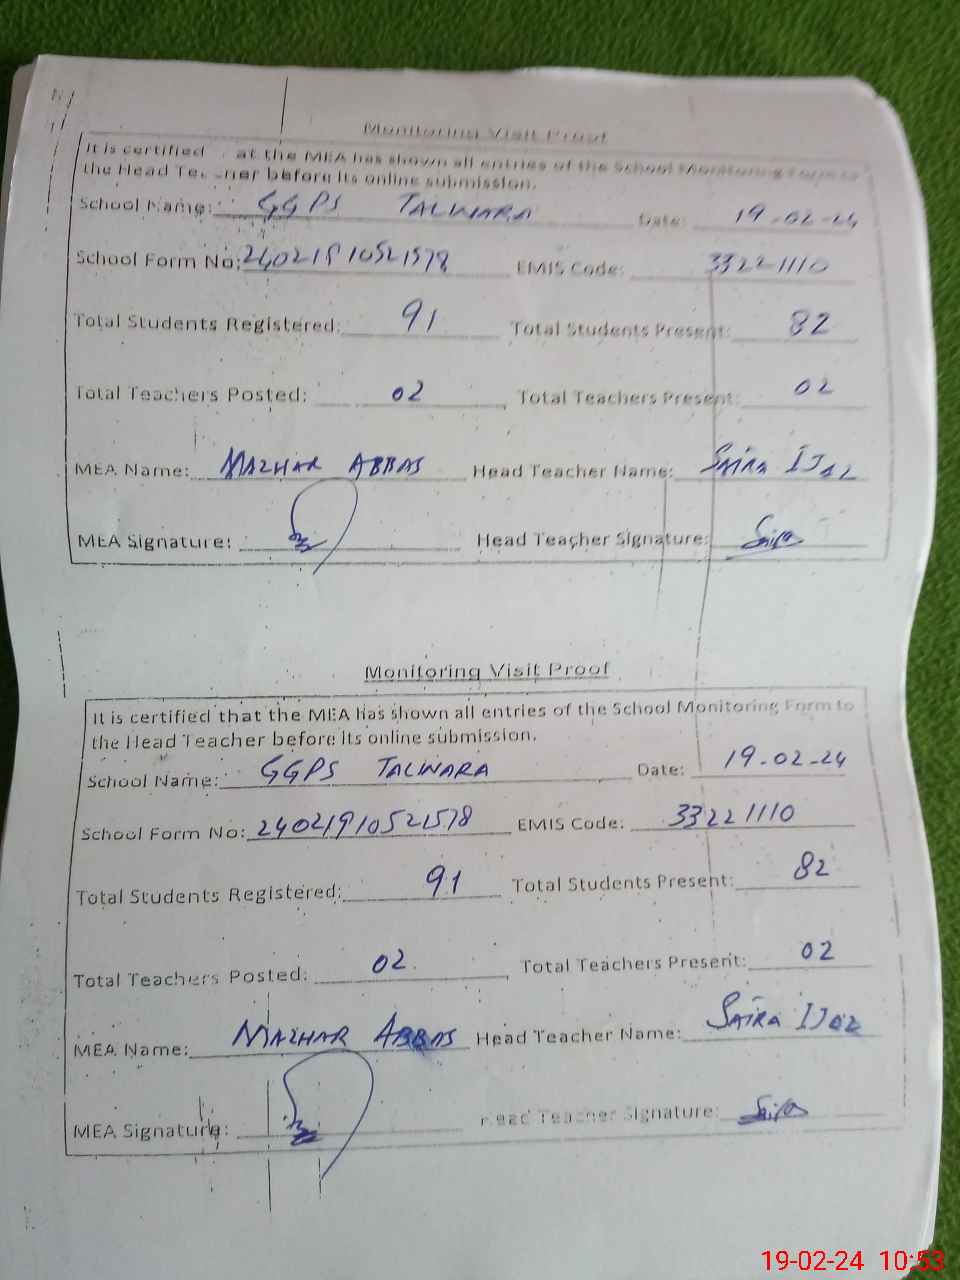 Monitoring Visit Proof
It is certified at the MEA has shown all entries of the School Monitoring Form to
the Head Teacher before its online submission.
School Name: GGPS TALWARA Date: 19-02-24
School Form No: 24021910521578 EMIS Code: 33221110
Total Students Registered: 91 Total Students Present: 82
Total Teachers Posted: 02 Total Teachers Present: 02
MEA Name: MAZHAR ABBAS Head Teacher Name: SAIRA IJAZ
MEA Signature: Head Teacher Signature: Saira
Monitoring Visit Proof
It is certified that the MEA has shown all entries of the School Monitoring Form to
the Head Teacher before its online submission.
School Name: GGPS TALWARA Date: 19-02-24
School Form No: 24021910521578 EMIS Code: 33221110
Total Students Registered: 91 Total Students Present: 82
Total Teachers Posted: 02 Total Teachers Present: 02
MEA Name: MAZHAR ABBAS Head Teacher Name: SAIRA IJAZ
MEA Signature: Head Teacher Signature: Saira
19-02-24 10:53